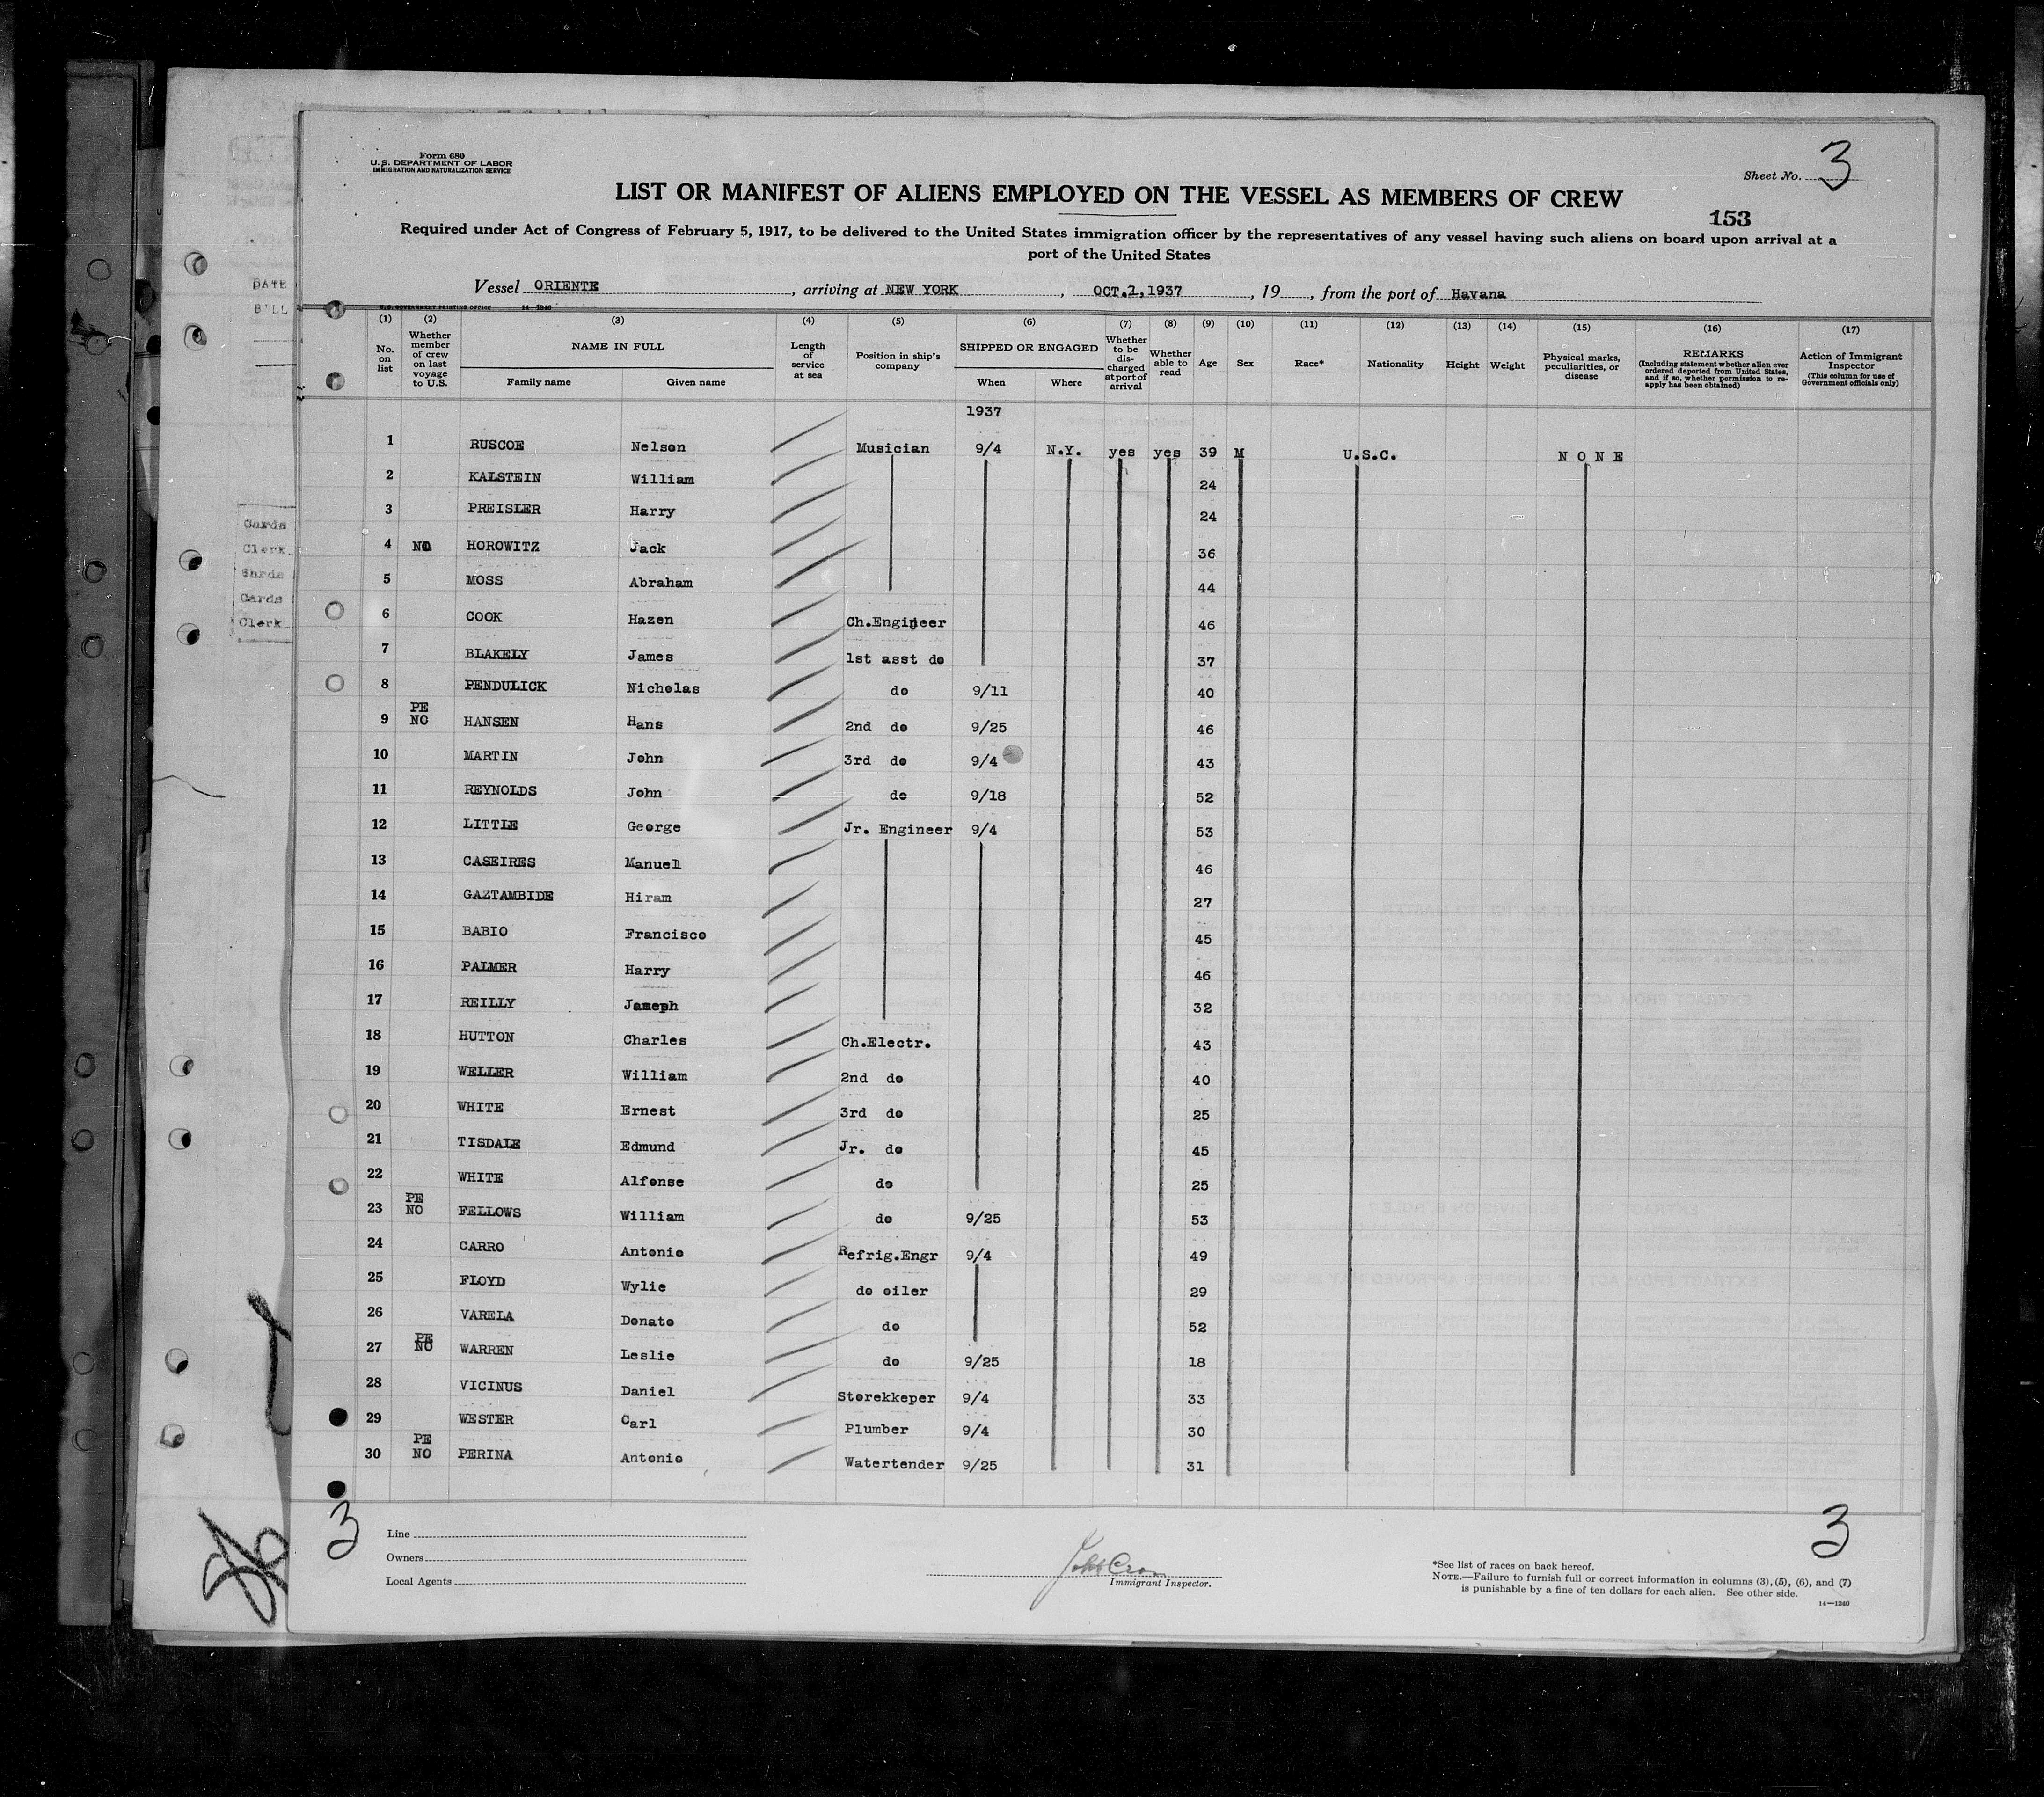 Form 680
U.S. DEPARTMENT OF LABOR
IMMIGRATION AND NATURALIZATION SERVICE
Sheet No. 3
LIST OR MANIFEST OF ALIENS EMPLOYED ON THE VESSEL AS MEMBERS OF CREW
153
Required under Act of Congress of February 5, 1917, to be delivered to the United States immigration officer by the representatives of any vessel having such aliens on board upon arrival at a
port of the United States
Vessel ORIENTE, arriving at NEW YORK, OCT.1,1937, 19, from the port of Havana
U.S. GOVERNMENT PRINTING OFFICE 14—1240
(1) (2) (3) (4) (5) (6) (7) (8) (9) (10) (11) (12) (13) (14) (15) (16) (17)
No. on list
Whether member of crew on last voyage to U.S.
NAME IN FULL
Family name Given name
Length of service at sea
Position in ship's company
SHIPPED OR ENGAGED
When Where
Whether to be discharged at port of arrival
Whether able to read
Age
Sex
Race*
Nationality
Height
Weight
Physical marks, peculiarities, or disease
REMARKS
(Including statement whether alien ever ordered deported from United States, and if so, whether permission to reapply has been obtained)
Action of Immigrant Inspector
(This column for use of Government officials only)
1937
1 RUSCOE Nelson Musician 9/4 N.Y. yes yes 39 M U.S.C. N O N E
2 KALSTEIN William 24
3 PREISLER Harry 24
4 NO HOROWITZ Jack 36
5 MOSS Abraham 44
6 COOK Hazen Ch.Engineer 46
7 BLAKELY James 1st asst do 37
8 PENDULICK Nicholas do 9/11 40
9 PE NO HANSEN Hans 2nd do 9/25 46
10 MARTIN John 3rd do 9/4 43
11 REYNOLDS John do 9/18 52
12 LITTLE George Jr. Engineer 9/4 53
13 CASEIRES Manuel 46
14 GAZTAMBIDE Hiram 27
15 BABIO Francisco 45
16 PALMER Harry 46
17 REILLY 32
18 HUTTON Charles Ch.Electr. 43
19 WELLER William 2nd do 40
20 WHITE Ernest 3rd do 25
21 TISDALE Edmund Jr. do 45
22 WHITE Alfonse do 25
23 PE NO FELLOWS William do 9/25 53
24 CARRO Antonio Refrig.Engr 9/4 49
25 FLOYD Wylie do oiler 29
26 VARELA Donato do 52
27 PE NO WARREN Leslie do 9/25 18
28 VICINUS Daniel Storekkeper 9/4 33
29 WESTER Carl Plumber 9/4 30
30 PE NO PERINA Antonio Watertender 9/25 31
DATE
Cards
Clerk
Cards
Cards
Clerk
3
3
Line
Owners
Local Agents
Immigrant Inspector.
*See list of races on back hereof.
NOTE.—Failure to furnish full or correct information in columns (3), (5), (6), and (7)
is punishable by a fine of ten dollars for each alien. See other side.
14—1240